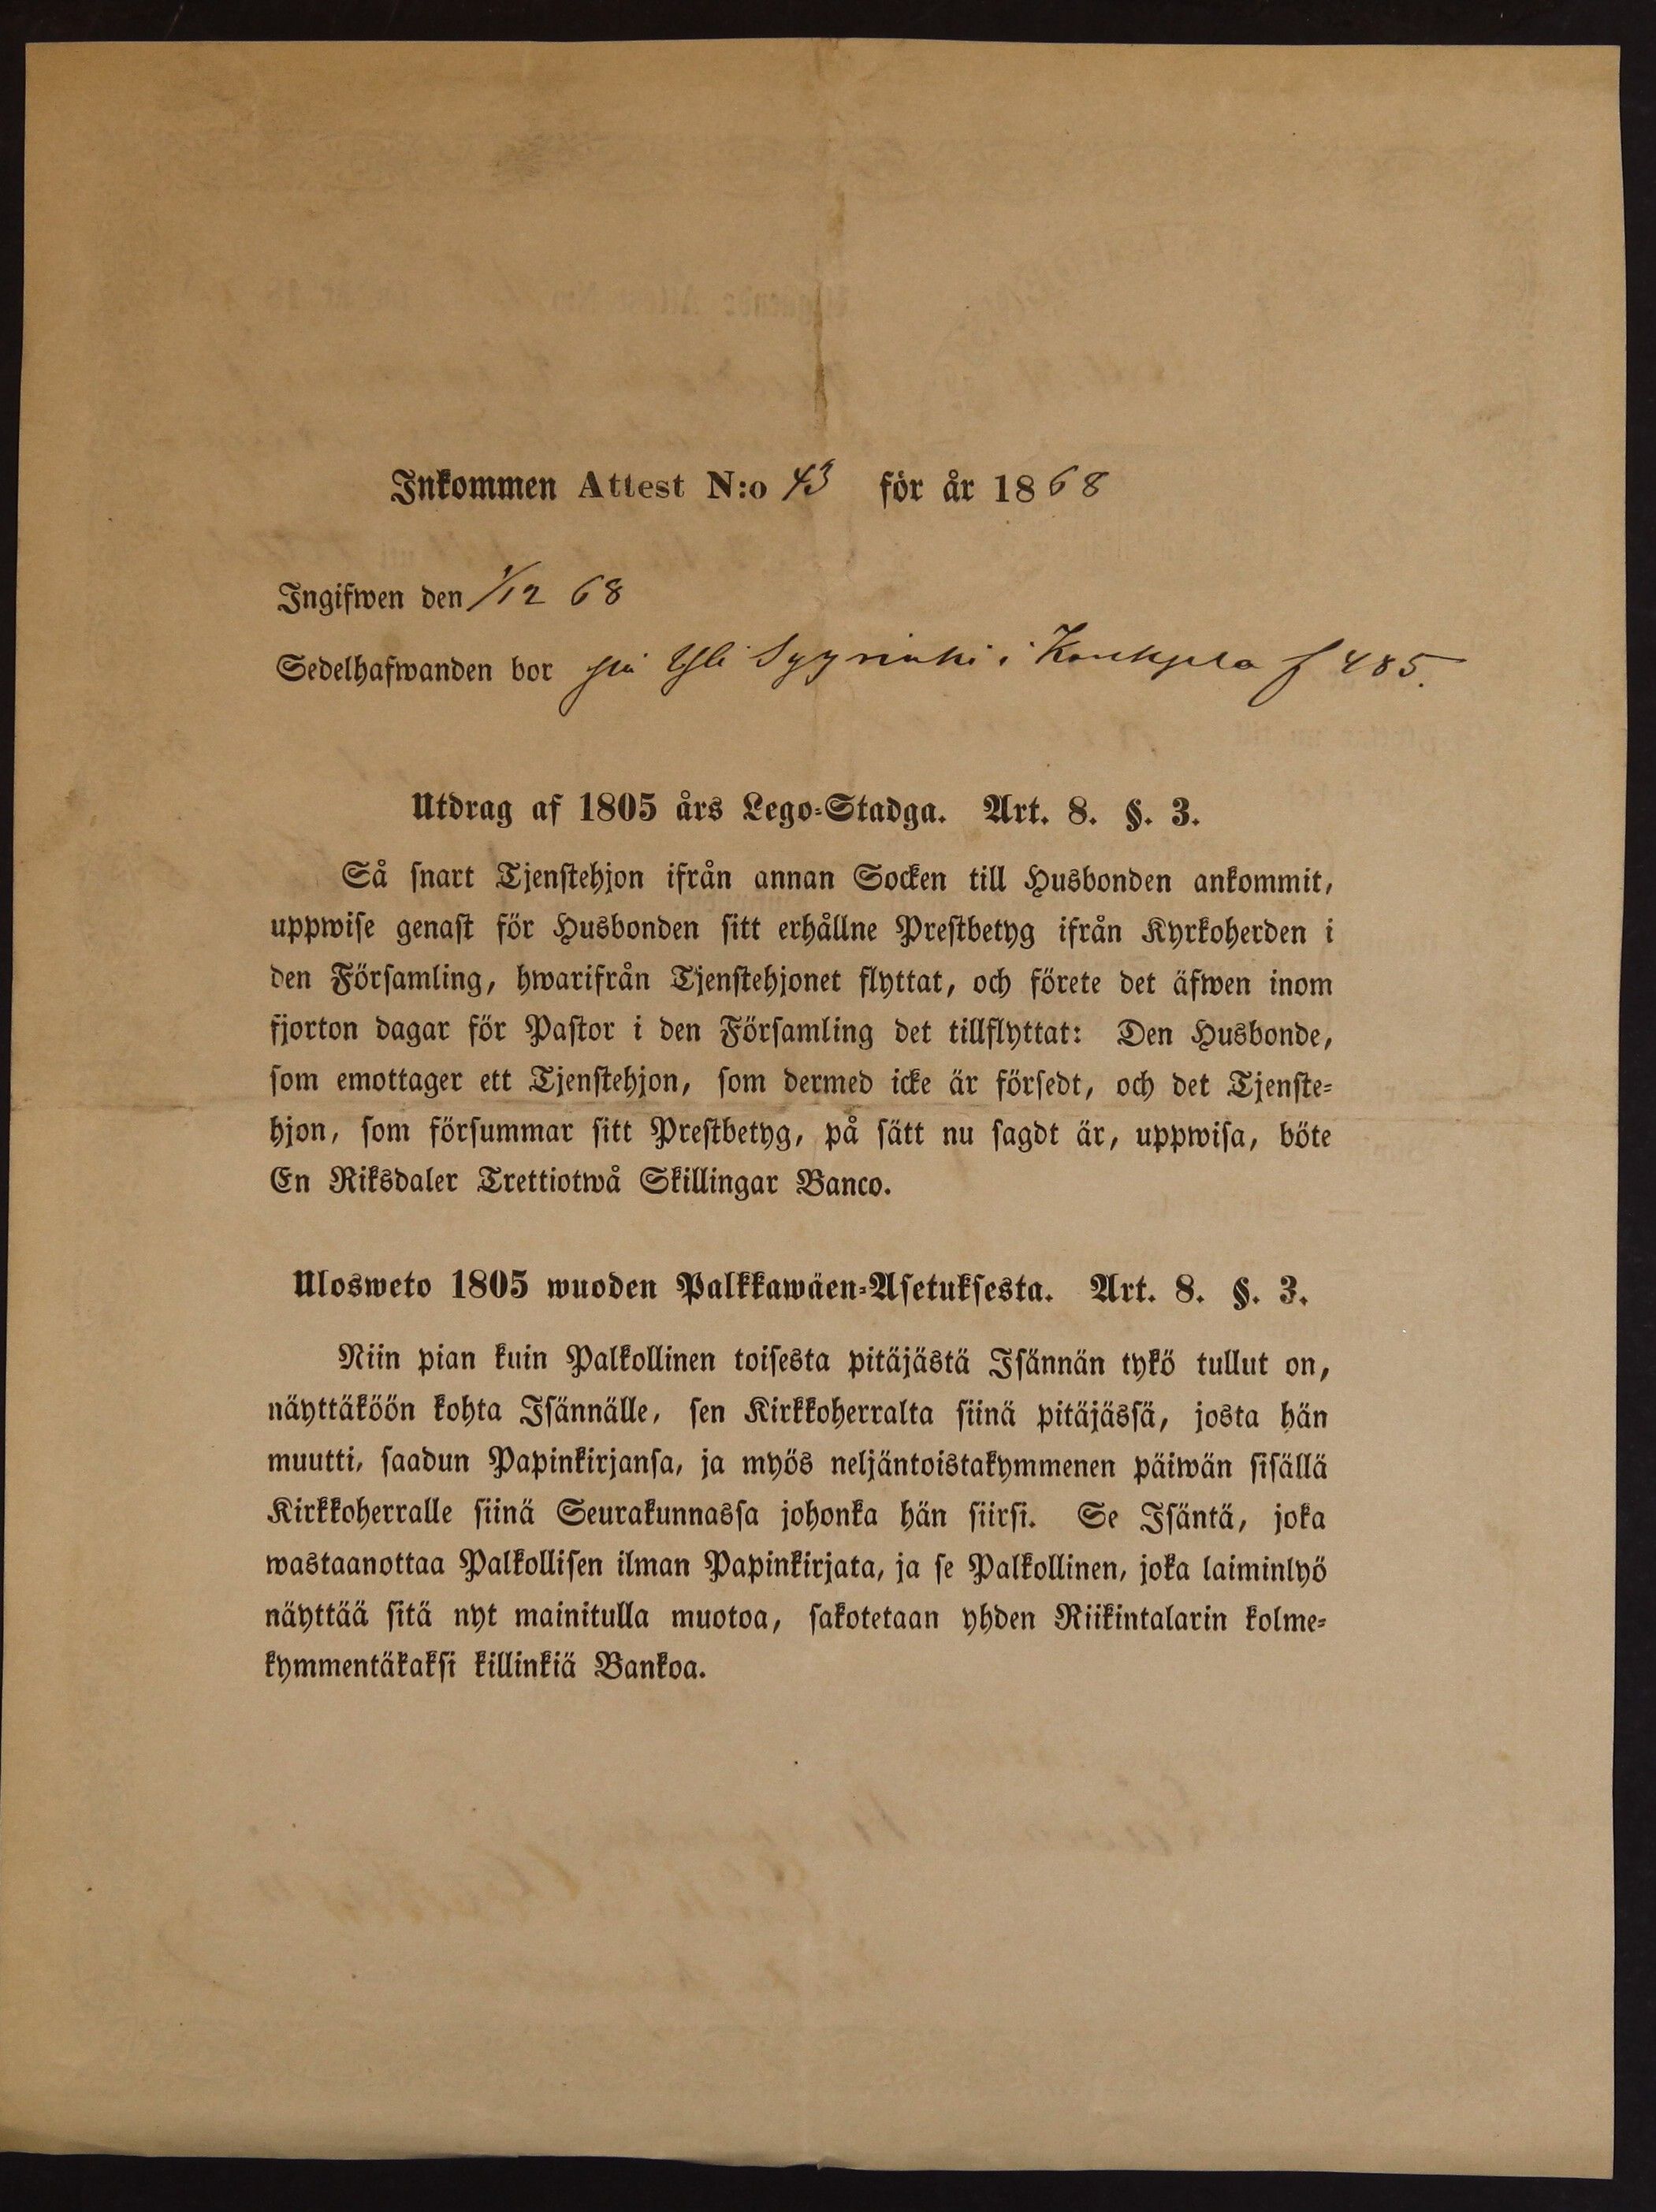 Inkommen Attest N:o 43 för år 1868
Ingifwen den 1/12 68
Sedelhafwanden bor på Yli i f 485.
Utdrag af 1805 års Lego-Stadga. Art. 8. §. 3.
Så snart Tjenstehjon ifrån annan Socken till Husbonden ankommit,
uppwise genast för Husbonden sitt erhållne Prestbetyg ifrån Kyrkoherden i
den Församling, hwarifrån Tjenstehjonet flyttat, och förete det äfwen inom
fjorton dagar för Pastor i den Församling det tillflyttat: Den Husbonde,
som emottager ett Tjenstehjon, som dermed icke är försedt, och det Tjenste-
hjon, som försummar sitt Prestbetyg, på sätt nu sagdt är, uppwisa, böte
En Riksdaler Trettiotwå Skillingar Banco.
Ulosweto 1805 wuoden Palkkawäen-Asetuksesta. Art. 8. §. 3.
Niin pian kuin Palkollinen toisesta pitäjästä Isännän tykö tullut on,
näyttäköön kohta Isännälle, sen Kirkkoherralta siinä pitäjässä, josta hän
muutti, saadun Papinkirjansa, ja myös neljäntoistakymmenen päiwän sisällä
Kirkkoherralle siinä Seurakunnassa johonka hän siirsi. Se Isäntä, joka
wastaanottaa Palkollisen ilman Papinkirjata, ja se Palkollinen, joka laiminlyö
näyttää sitä nyt mainitulla muotoa, sakotetaan yhden Riikintalarin kolme-
kymmentäkaksi killinkiä Bankoa.